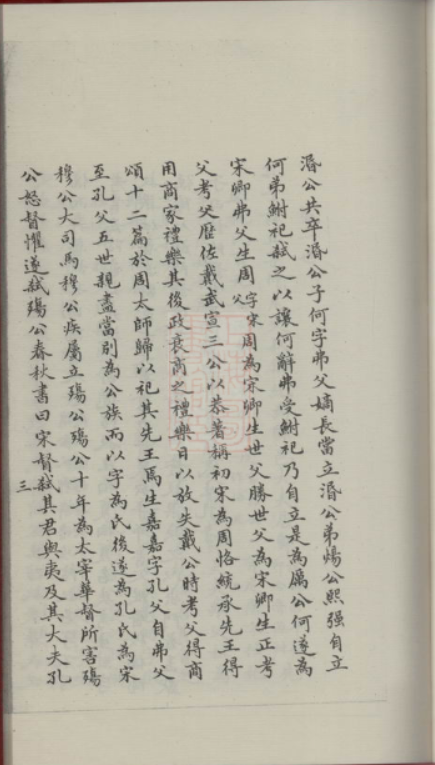 湣公共卒湣公子何字弗父嫡長當立湣公弟煬公熙强自立
何弟鮒祀弑之以讓何何辭弗受鮒祀乃自立是為厲公何遂為
宋卿弗父生周字宋父周為宋卿生世父勝世父為宋卿生正考
父考父歷佐戴武宣三公以恭著稱初宋為周恪統承先王得
用商家禮樂其後政衰商之禮樂日以放失戴公時考父得商
頌十二篇於周太師歸以祀其先王焉生嘉嘉字孔父自弗父
至孔父五世親盡當别為公族而以字為氏後遂為孔氏為宋
穆公大司馬穆公疾屬立殤公殤公十年為太宰華督所害殤
公怒督懼遂弑殤公春秋書曰宋督弑其君與夷及其大夫孔
三